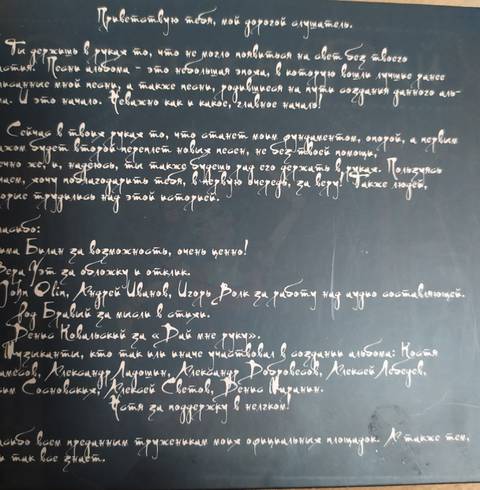 Приветствую тебя, мой дорогой слушатель.
Ты держишь в руках то, что не могло появиться на свет без твоего
астия. Песни альбома - это небольшая эпоха, в которую вошли лучшие ранее
исанные мной песни, а также песни, родившиеся на пути создания данного аль-
ма. И это начало. Неважно как и какое, главное начало!
Сейчас в твоих руках то, что станет моим фундаментом, опорой, а первым
ажом будет второй переплет новых песен, не без твоей помощи,
ечно же, и, надеюсь, ты также будешь рад его держать в руках. Пользуясь
чаем, хочу поблагодарить тебя, в первую очередь, за веру! Также людей,
орые трудились над этой историей.
асибо:
има Билан за возможность, очень ценно!
Вера Уэт за обложку и отклик.
John Olin, Андрей Иванов, Игорь Волк за работу над аудио составляющей.
Род Бравый за мысли в стихи.
Денис Ковальский за «Дай мне руку».
Музыканты, кто так или иначе участвовал в создании альбома: Костя
Александр Ладошин, Александр Добровесов, Алексей Лебедев,
им Сосновских, Алексей Светов, Денис Таранин.
Катя за поддержку в нелгком!
асибо всем преданным труженикам моих официальных площадок. А также тем,
и так все знает.